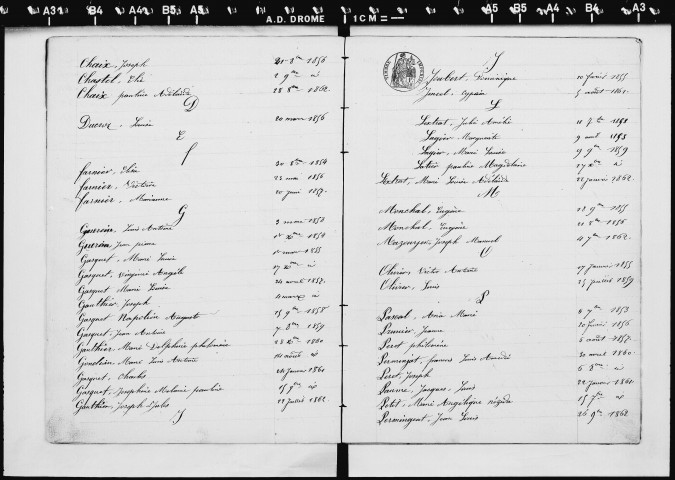 A3 B4 A4 B5 A5
A.D. DROME
1CM =
A5 B5 A4 B4 A3
Chaix, Joseph 21 8bre 1856
Chastel, Elie 2 9bre id
Chaix pauline Adélaïde 28 8bre 1862
D
Ducros, Louise 20 mars 1856
E
F
farnier, Elisa 20 8bre 1854
farnier, Victoire 23 mai 1856
farnier, Marianne 20 juin 1857
G
Guerin, Louis Antoine 3 mars 1853
Guerin Jean pierre Xbre 1854
Gasquet, Marie Louise mars 1855
Gasquet, Virginie Angèle 17 Xbre id
Gasquet Marie Louise 24 août 1857
Gauthier Joseph id
Gasquet Napoléon Auguste 15 9bre 1858
Gasquet, Jean Antoine 7 8bre 1859
Gauthier, Marie Delphine philomène 23 Xbre 1860
Marie Louis Antoine août id
Gasquet, Charles 24 janvier 1861
Gasquet, Joséphine Mélanie pauline 15 9bre id
Gauthier, Joseph Jules 22 juillet 1862
J
J
Joubert, Dominique 10 février 1855
cyprien 5 août 1861
L
Lextrat, Julie 11 7bre
Lagier Marguerite 9 avril
Lagier, Marie Louise 19 9bre 1859
pauline Magdeleine 17 Xbre id
Lextrat, Marie Louise Adélaïde 22 janvier 1862
M
Monchal, Eugène 18 9bre 1855
Monchal, Eugénie 21 8bre 1856
Mazoyer, Joseph Manuel 4 7bre 1862
O
Olivier, Victor Antoine 17 janvier 1855
Olivier, Louis 25 juillet 1859
P
Pascal, Marie 8 7bre 1853
Prunier, Jeanne 20 février 1856
Perot philomène 5 août 1857
Permingeat, francois Louis Amédée 30 avril 1860
Perot, Joseph 6 8bre id
Paume, Jacques, Louis 22 janvier 1861
Petit, Marie Angélique 15 7bre id
Permingeat, Jean Louis 26 9bre 1862